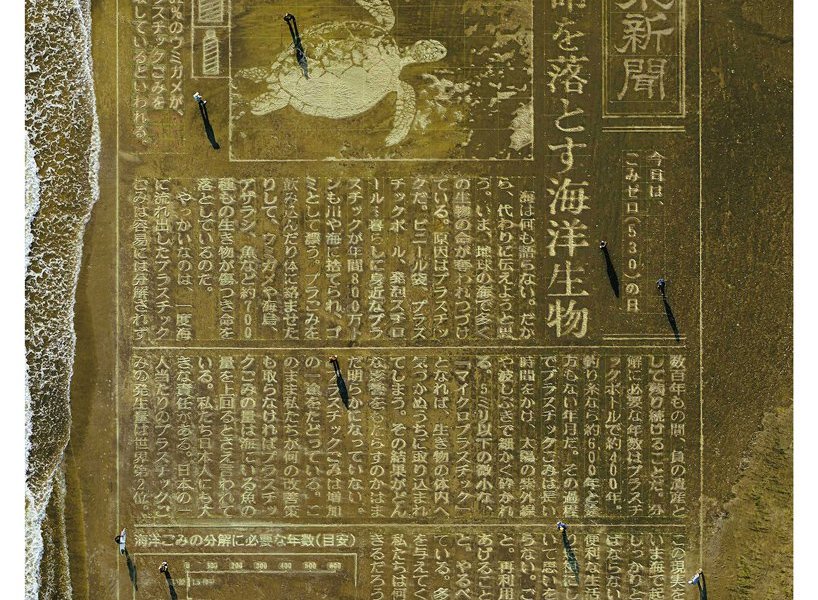 新聞
命を落とす海洋生物
今日は、
ごみゼロ（530）の日
海は何も語らない。だか
ら、代わりに伝えようと思
う。いま、地球の海で多く
の生物の命が奪われつづけ
ている。原因はプラスチッ
クだ。ビニール袋、プラス
チックボトル、発泡スチロ
ール…暮らしに身近なプラ
スチックが年間800万ト
ンも川や海に捨てられ、ゴ
ミとして漂う。プラごみを
飲み込んだり体に絡ませた
りして、ウミガメや海鳥、
アザラシ、魚など約700
種もの生き物が傷つき命を
落としているのだ。
やっかいなのは、一度海
に流れ出したプラスチック
ごみは容易には分解されず、
数百年もの間、負の遺産と
して残り続けることだ。分
解に必要な年数はプラスチ
ックボトルで約400年。
釣り糸なら約600年と途
方もない年月だ。その過程
でプラスチックごみは長い
時間をかけ、太陽の紫外線
や波しぶきで細かく砕かれ
る。5ミリ以下の微小な、
「マイクロプラスチック」
となれば、生き物の体内へ
気づかぬうちに取り込まれ
てしまう。その結果がどん
な影響をもたらすのかはま
だ明らかになっていない。
プラスチックごみは増加
の一途をたどっている。こ
のまま私たちが何の改善策
も取らなければプラスチッ
クごみの量は海にいる魚の
量を上回るとさえ言われて
いる。私たち日本人にも大
きな責任がある。日本の一
人当たりのプラスチックご
みの発生量は世界第2位。
この現実を
いま海で起
しっかりと
ばならない
便利な生活
いて思いを
らない。ご
と。再利用
あげること
と。やるべ
ている。多
を与えてく
私たちは何
きるだろう
ウミガメが、
スチックごみを
取しているといわれる。
海洋ごみの分解に必要な年数（目安）
0 100 200 300 400 500 600